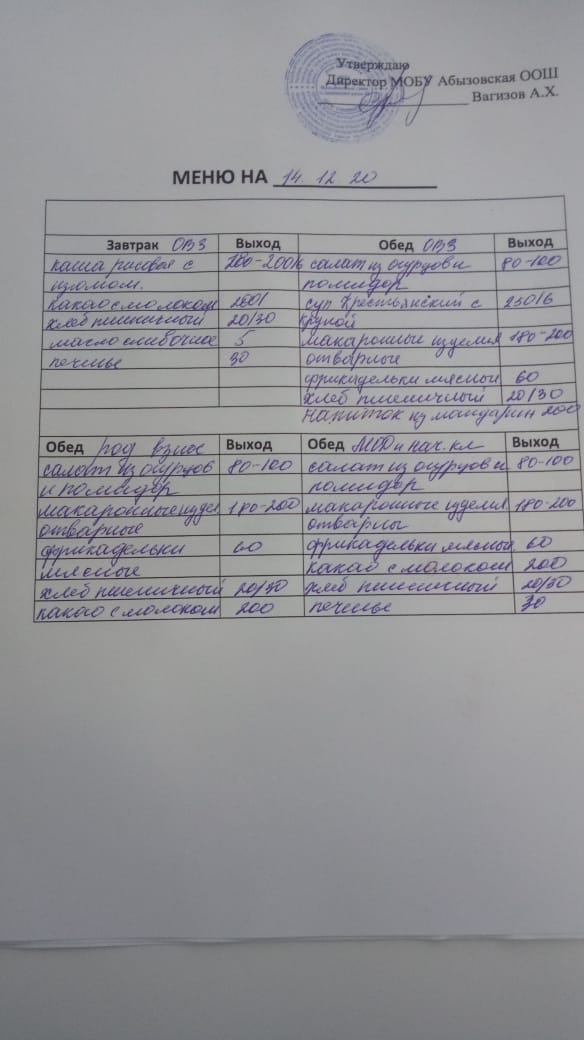 Утверждаю
Директор МОБУ Абызовская ООШ
Вагизов А.Х.
МЕНЮ НА 14. 12. 20
Завтрак ОВЗ Выход Обед ОВЗ Выход
каша рисовая с салат из огурцов и 80-100
изюмом. помидор
какао с молоком 200/ суп Крестьянский с 250/6
хлеб пшеничный 20/30 крупой
масло сливочное 5 макаронные изделия 180-200
печенье 30 отварные
фрикадельки мясные 60
хлеб пшеничный 20/30
Напиток из мандарин 200
Обед род взнос Выход Обед МОД и нач. кл Выход
салат из огурцов 80-100 салат из огурцов и 80-100
и помидор помидор
макаронные издел 180-200 макаронные изделия 180-200
отварные отварны
фрикадельки 60 фрикадельки мясные 60
мясные какао с молоком 200
хлеб пшеничный 20/30 хлеб пшеничный 20/30
какао с молоком 200 печенье 30